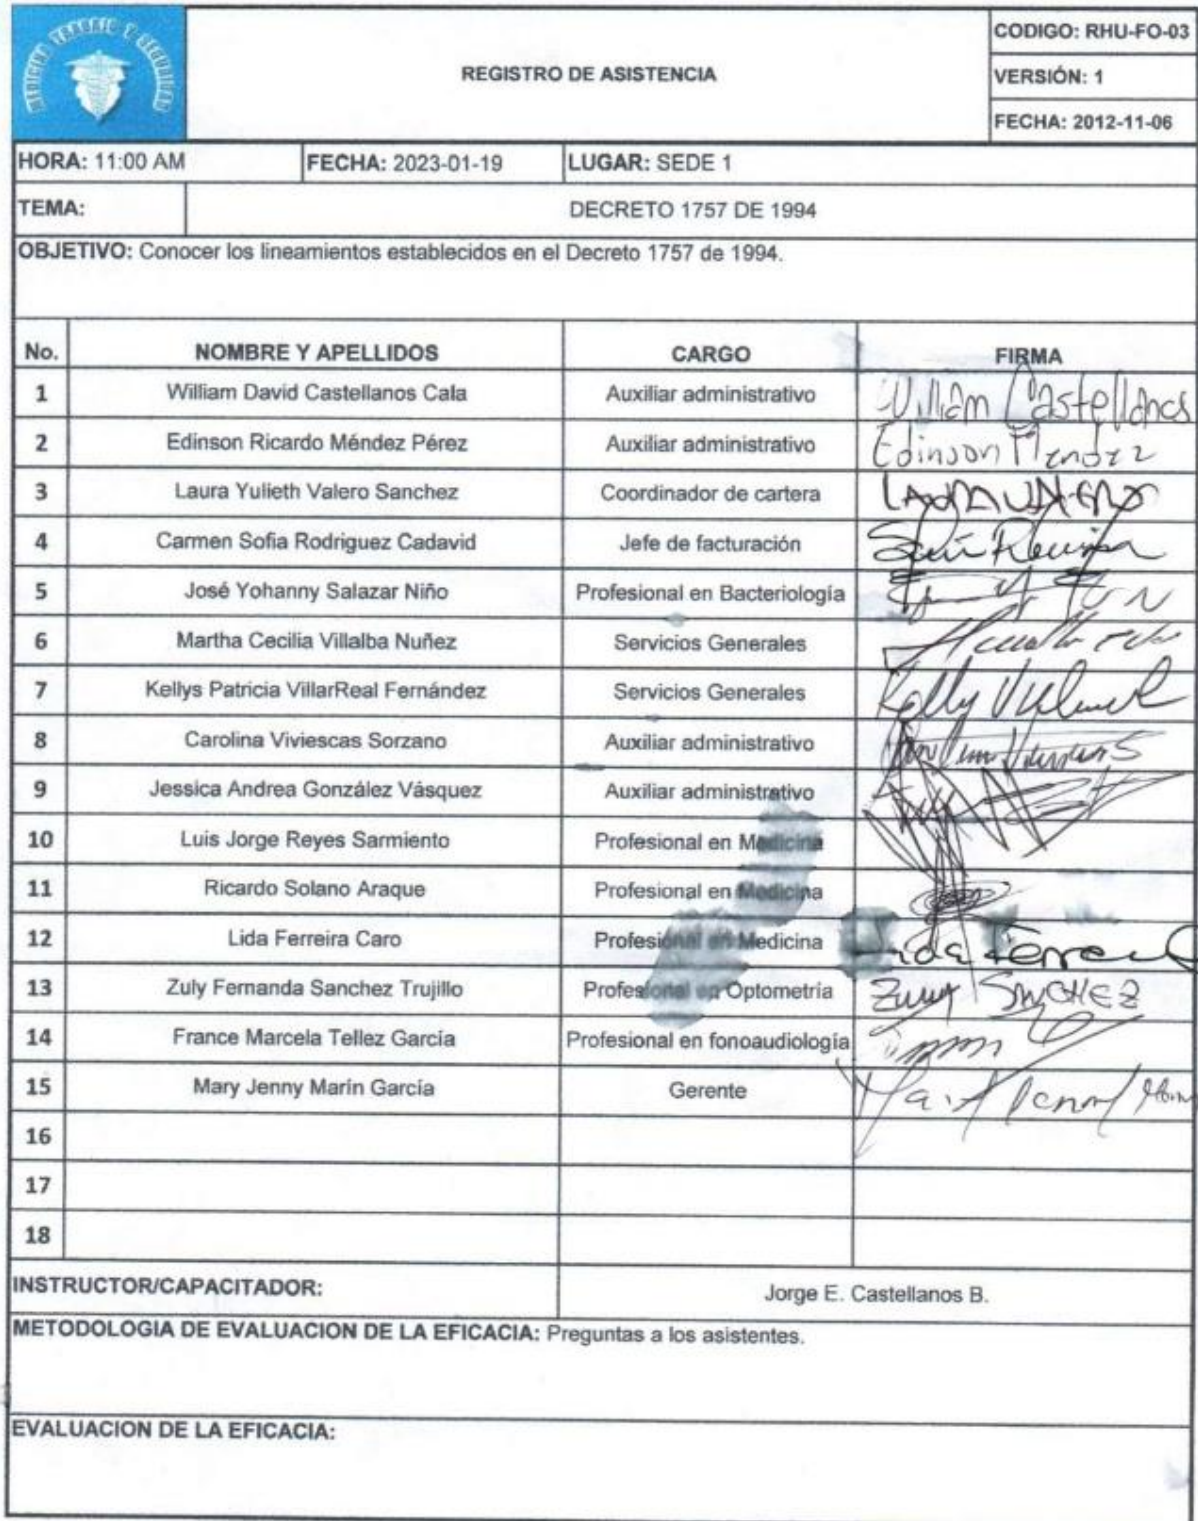 MEDICINA TRABAJO Y SEGURIDAD
REGISTRO DE ASISTENCIA
CODIGO: RHU-FO-03
VERSIÓN: 1
FECHA: 2012-11-06
HORA: 11:00 AM FECHA: 2023-01-19 LUGAR: SEDE 1
TEMA: DECRETO 1757 DE 1994
OBJETIVO: Conocer los lineamientos establecidos en el Decreto 1757 de 1994.
No. NOMBRE Y APELLIDOS CARGO FIRMA
1 William David Castellanos Cala Auxiliar administrativo William Castellanos
2 Edinson Ricardo Méndez Pérez Auxiliar administrativo Edinson Mendez
3 Laura Yulieth Valero Sanchez Coordinador de cartera
4 Carmen Sofia Rodriguez Cadavid Jefe de facturación
5 José Yohanny Salazar Niño Profesional en Bacteriología
6 Martha Cecilia Villalba Nuñez Servicios Generales
7 Kellys Patricia VillarReal Fernández Servicios Generales Kelly
8 Carolina Viviescas Sorzano Auxiliar administrativo
9 Jessica Andrea González Vásquez Auxiliar administrativo
10 Luis Jorge Reyes Sarmiento Profesional en Medicina
11 Ricardo Solano Araque Profesional en Medicina
12 Lida Ferreira Caro Profesional en Medicina Lida Ferreira
13 Zuly Fernanda Sanchez Trujillo Profesional en Optometría Zuly SANCHEZ
14 France Marcela Tellez García Profesional en fonoaudiología
15 Mary Jenny Marín García Gerente
16
17
18
INSTRUCTOR/CAPACITADOR: Jorge E. Castellanos B.
METODOLOGIA DE EVALUACION DE LA EFICACIA: Preguntas a los asistentes.
EVALUACION DE LA EFICACIA: